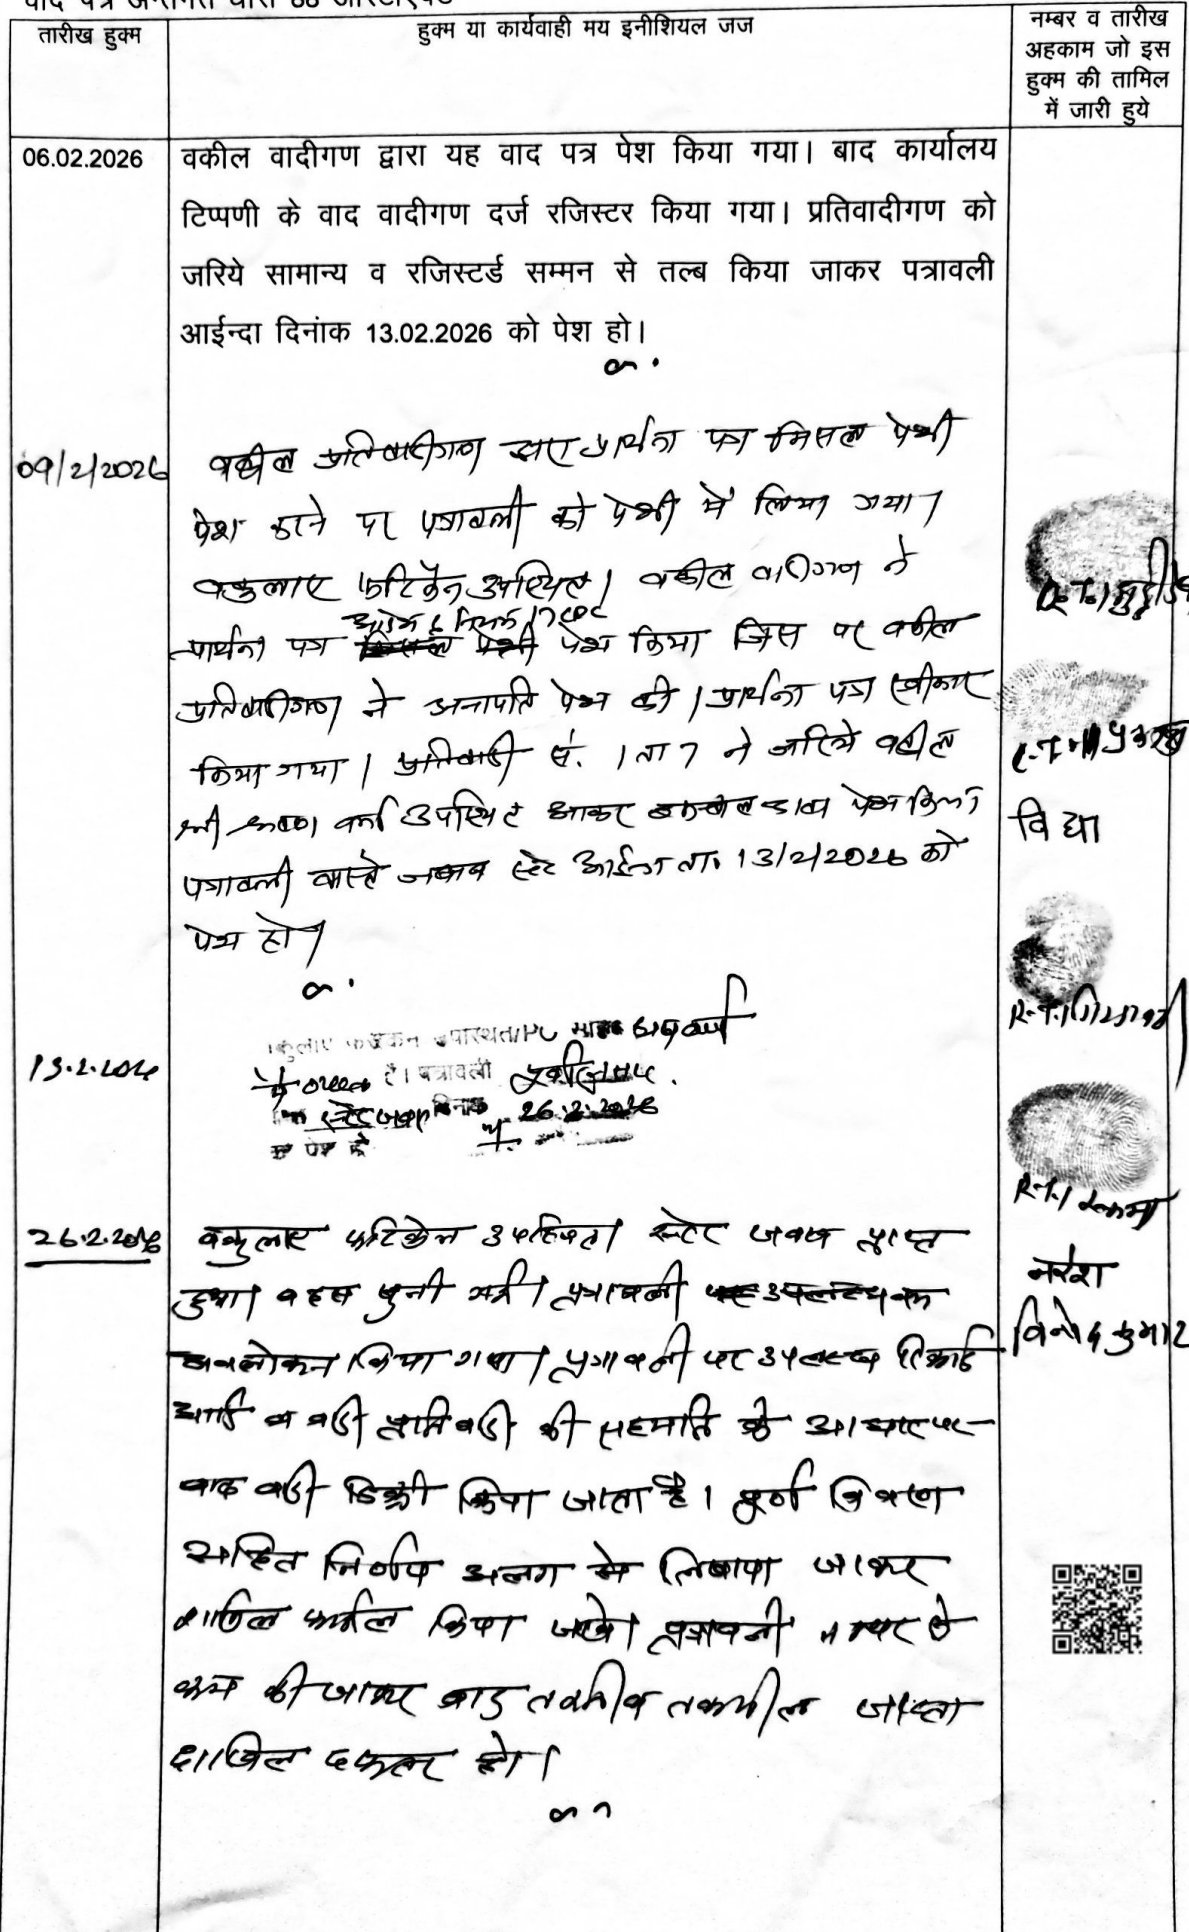 तारीख हुक्म
हुक्म या कार्यवाही मय इनीशियल जज
नम्बर व तारीख
अहकाम जो इस
हुक्म की तामिल
में जारी हुये
06.02.2026
वकील वादीगण द्वारा यह वाद पत्र पेश किया गया। बाद कार्यालय
टिप्पणी के वाद वादीगण दर्ज रजिस्टर किया गया। प्रतिवादीगण को
जरिये सामान्य व रजिस्टर्ड सम्मन से तल्ब किया जाकर पत्रावली
आईन्दा दिनांक 13.02.2026 को पेश हो।
09/2/2026
वकील प्रतिवादीगण द्वारा प्रार्थना पत्र मिसल पेशी
पेश करने पर पत्रावली को पेशी में लिया गया।
वकुलाए फरिकेन उपस्थित। वकील वादीगण ने
आदेश 6 नियम 17 CPC
प्रार्थना पत्र मिसल पेशी पेश किया जिस पर वकील
प्रतिवादीगण ने अनापति पेश की। प्रार्थना पत्र स्वीकार
किया गया। प्रतिवादी सं. 1 ता 7 ने जरिये वकील
श्री वर्मा उपस्थित आकर पेश किया
पत्रावली वास्ते जवाब स्टेट आईन्दा ता. 13/2/2026 को
पेश हो।
13.2.2026
उपस्थित/PO
है। पत्रावली
स्टेट जवाब दिनांक 26.2.2026
को पेश हो
26.2.2026
वकुलाए फरिकेन उपस्थित। स्टेट जवाब प्राप्त
हुआ। बहस सुनी गई। पत्रावली का
अवलोकन किया गया। पत्रावली पर उपलब्ध रिकार्ड
आदि व वादी प्रतिवादी की सहमति के आधार पर
वाद वादी डिक्री किया जाता है। पूर्ण विवरण
सहित निर्णय अलग से लिखाया जाकर
शामिल फाईल किया जावे। पत्रावली नम्बर से
कम की जाकर बाद तरतीब तकमील जाब्ता
दाखिल दफ्तर हो।
विद्या
नरेश
विनोद कुमार